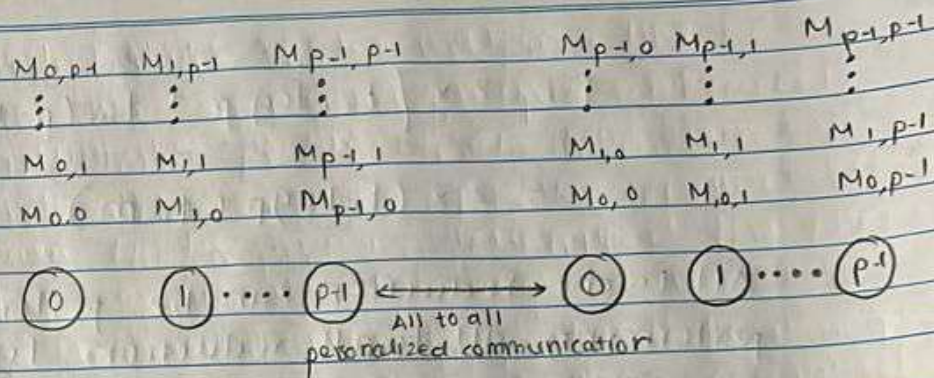 M0,p-1 M1,p-1 Mp-1,p-1 Mp-1,0 Mp-1,1 Mp-1,p-1
M0,1 M1,1 Mp-1,1 M1,0 M1,1 M1,p-1
M0,0 M1,0 Mp-1,0 M0,0 M,0,1 M0,p-1
0 1 .... p-1 0 1 .... p-1
All to all
personalized communication